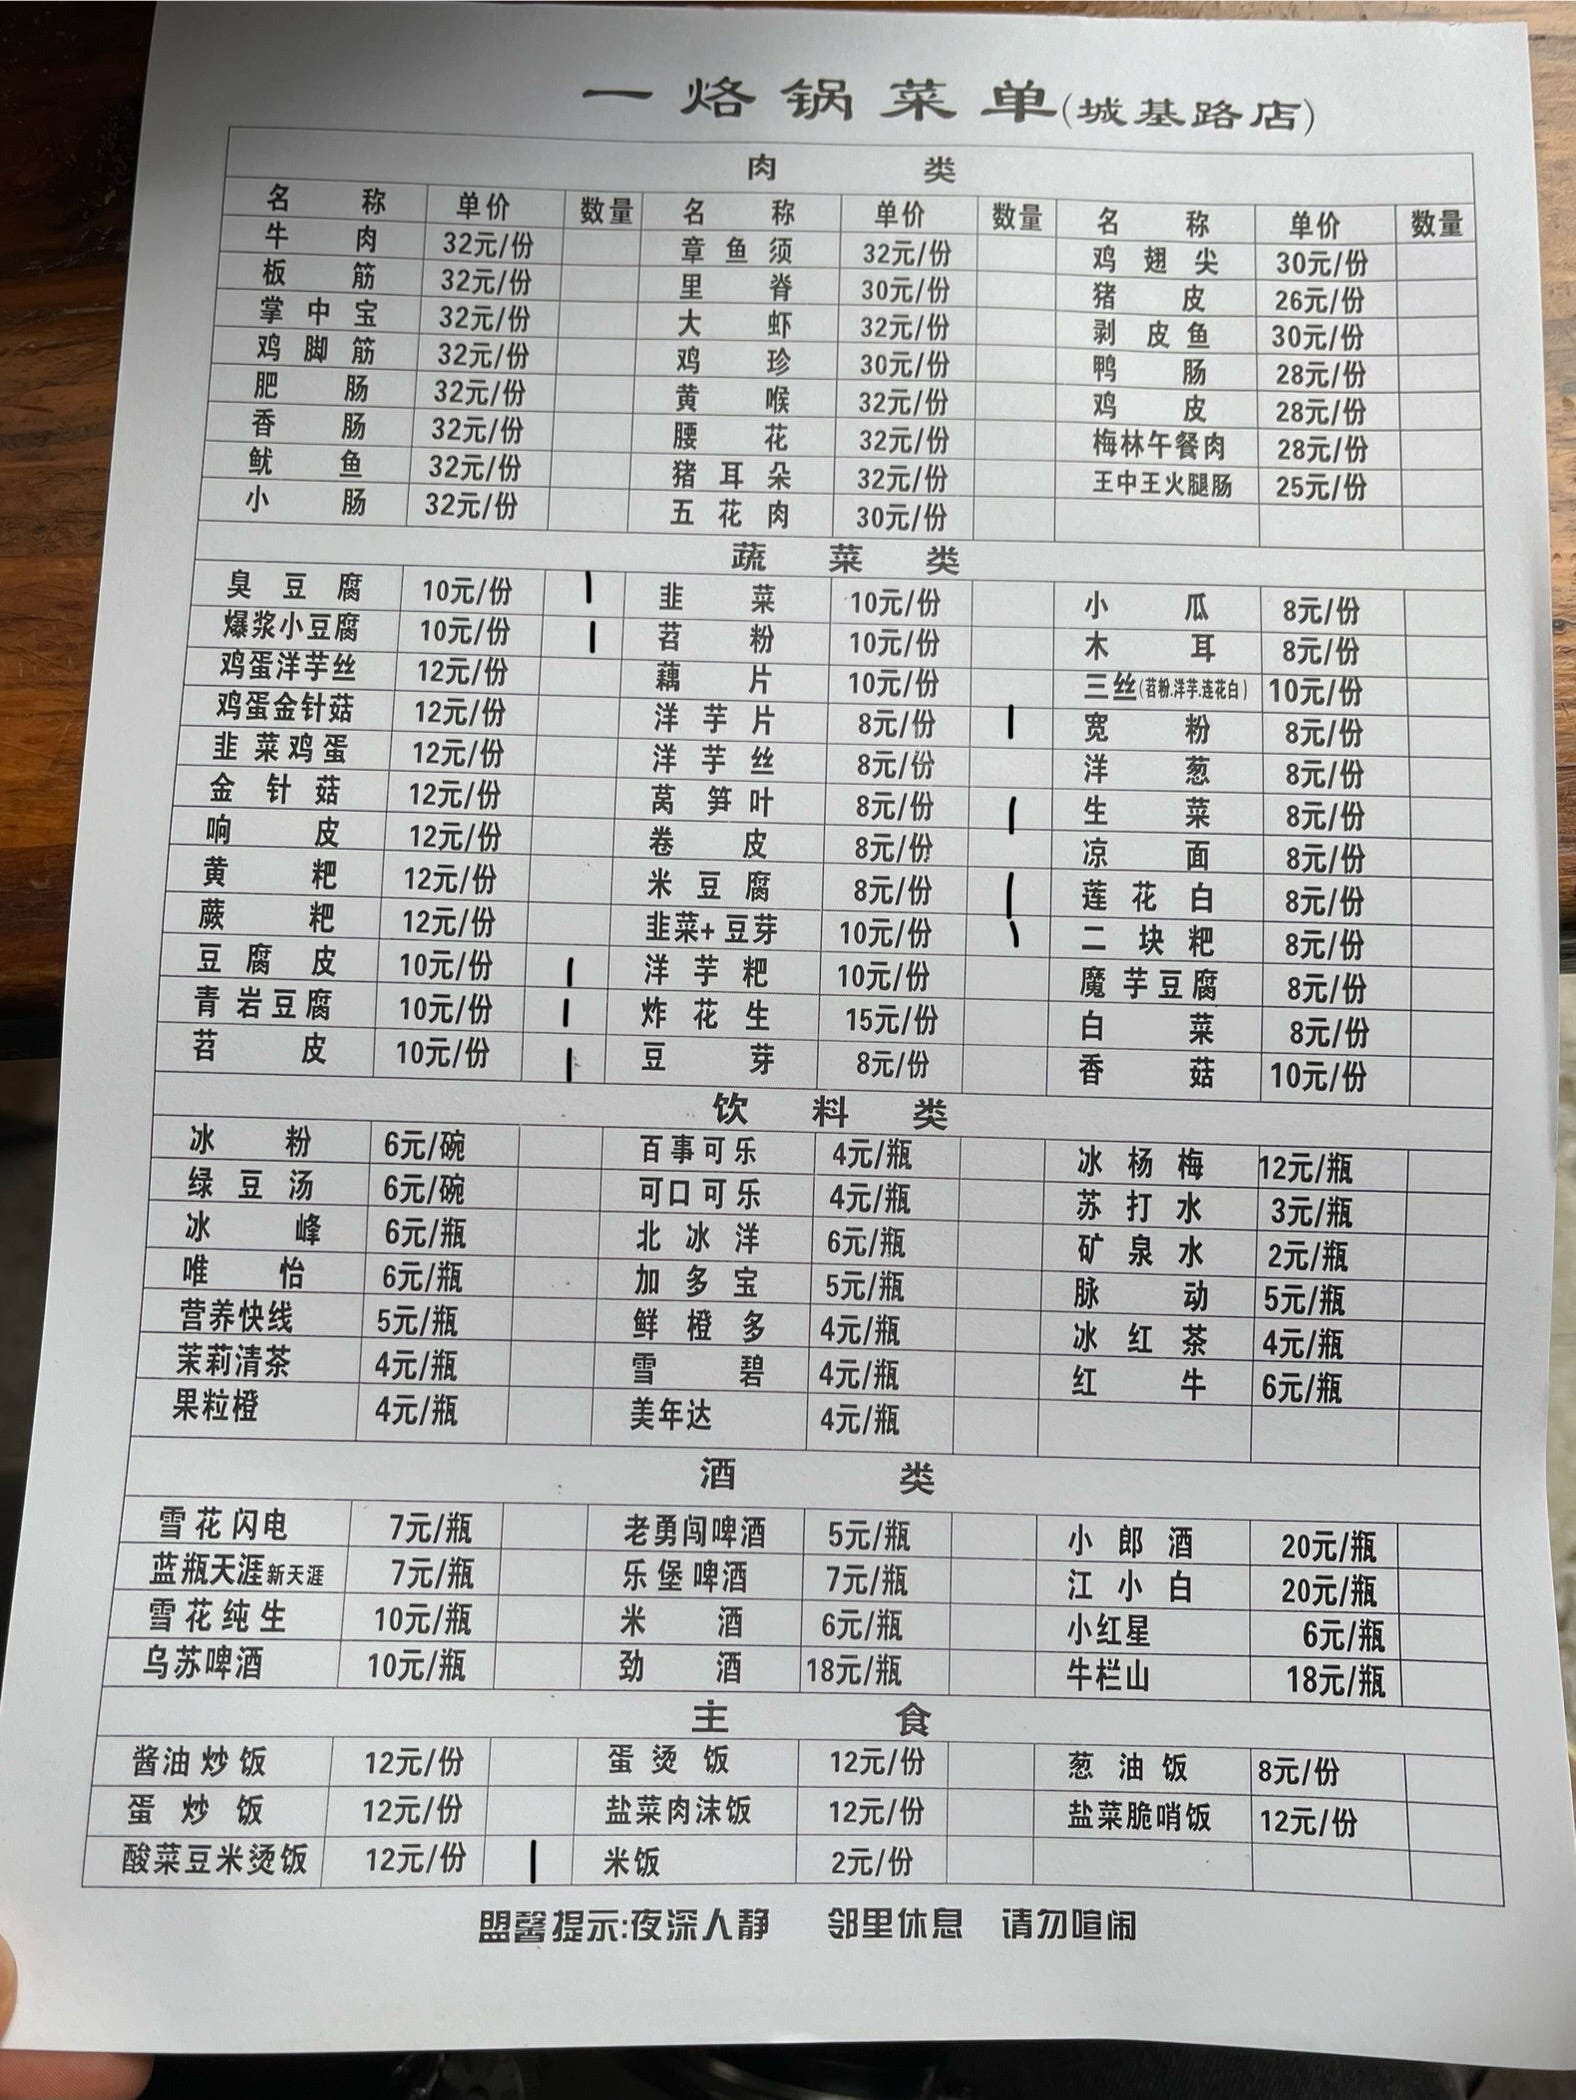 一烙锅菜单(城基路店)
肉类
名称 单价 数量 名称 单价 数量 名称 单价 数量
牛肉 32元/份 章鱼须 32元/份 鸡翅尖 30元/份
板筋 32元/份 里脊 30元/份 猪皮 26元/份
掌中宝 32元/份 大虾 32元/份 剥皮鱼 30元/份
鸡脚筋 32元/份 鸡珍 30元/份 鸭肠 28元/份
肥肠 32元/份 黄喉 32元/份 鸡皮 28元/份
香肠 32元/份 腰花 32元/份 梅林午餐肉 28元/份
鱿鱼 32元/份 猪耳朵 32元/份 王中王火腿肠 25元/份
小肠 32元/份 五花肉 30元/份
蔬菜类
臭豆腐 10元/份 | 韭菜 10元/份 小瓜 8元/份
爆浆小豆腐 10元/份 | 苕粉 10元/份 木耳 8元/份
鸡蛋洋芋丝 12元/份 藕片 10元/份 三丝(苕粉.洋芋.莲花白) 10元/份
鸡蛋金针菇 12元/份 洋芋片 8元/份 | 宽粉 8元/份
韭菜鸡蛋 12元/份 洋芋丝 8元/份 洋葱 8元/份
金针菇 12元/份 莴笋叶 8元/份 | 生菜 8元/份
响皮 12元/份 卷皮 8元/份 凉面 8元/份
黄粑 12元/份 米豆腐 8元/份 | 莲花白 8元/份
蕨粑 12元/份 韭菜+豆芽 10元/份 | 二块粑 8元/份
豆腐皮 10元/份 | 洋芋粑 10元/份 魔芋豆腐 8元/份
青岩豆腐 10元/份 | 炸花生 15元/份 白菜 8元/份
苕皮 10元/份 | 豆芽 8元/份 香菇 10元/份
饮料类
冰粉 6元/碗 百事可乐 4元/瓶 冰杨梅 12元/瓶
绿豆汤 6元/碗 可口可乐 4元/瓶 苏打水 3元/瓶
冰峰 6元/瓶 北冰洋 6元/瓶 矿泉水 2元/瓶
唯怡 6元/瓶 加多宝 5元/瓶 脉动 5元/瓶
营养快线 5元/瓶 鲜橙多 4元/瓶 冰红茶 4元/瓶
茉莉清茶 4元/瓶 雪碧 4元/瓶 红牛 6元/瓶
果粒橙 4元/瓶 美年达 4元/瓶
酒类
雪花闪电 7元/瓶 老勇闯啤酒 5元/瓶 小郎酒 20元/瓶
蓝瓶天涯新天涯 7元/瓶 乐堡啤酒 7元/瓶 江小白 20元/瓶
雪花纯生 10元/瓶 米酒 6元/瓶 小红星 6元/瓶
乌苏啤酒 10元/瓶 劲酒 18元/瓶 牛栏山 18元/瓶
主食
酱油炒饭 12元/份 蛋烫饭 12元/份 葱油饭 8元/份
蛋炒饭 12元/份 盐菜肉沫饭 12元/份 盐菜脆哨饭 12元/份
酸菜豆米烫饭 12元/份 | 米饭 2元/份
盟馨提示:夜深人静 邻里休息 请勿喧闹